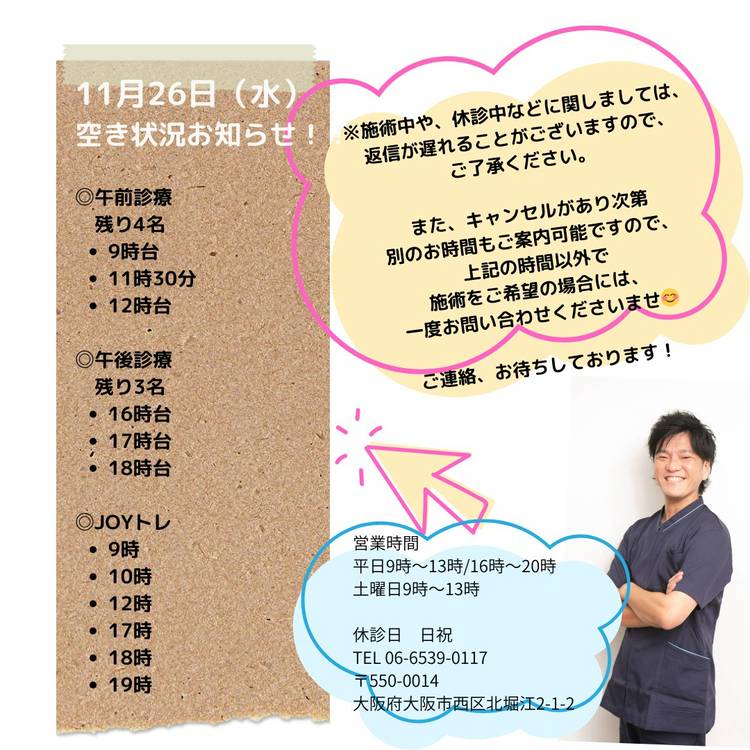 11月26日（水）
空き状況お知らせ！
◎午前診療
残り4名
• 9時台
• 11時30分
• 12時台
◎午後診療
残り3名
• 16時台
• 17時台
• 18時台
◎JOYトレ
• 9時
• 10時
• 12時
• 17時
• 18時
• 19時
※施術中や、休診中などに関しましては、
返信が遅れることがございますので、
ご了承ください。
また、キャンセルがあり次第
別のお時間もご案内可能ですので、
上記の時間以外で
施術をご希望の場合には、
一度お問い合わせくださいませ😊
ご連絡、お待ちしております！
営業時間
平日9時〜13時/16時〜20時
土曜日9時〜13時
休診日　日祝
TEL 06-6539-0117
〒550-0014
大阪府大阪市西区北堀江2-1-2